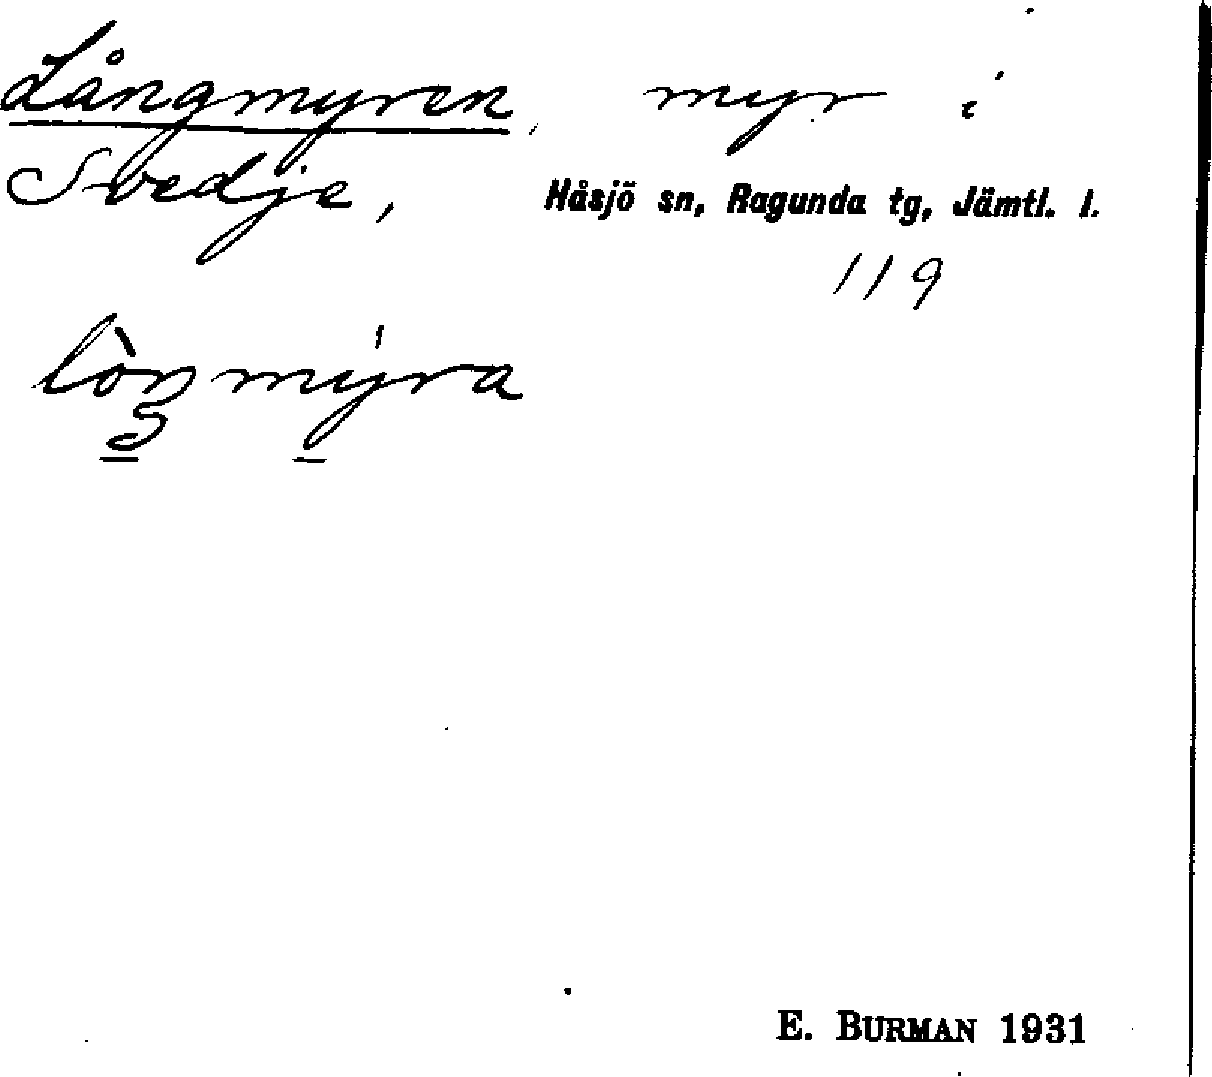 Långmyren, myr i
Svedje, Håsjö sn, Ragunda tg, Jämtl. l.
119
lòŋmýra
E. BURMAN 1931